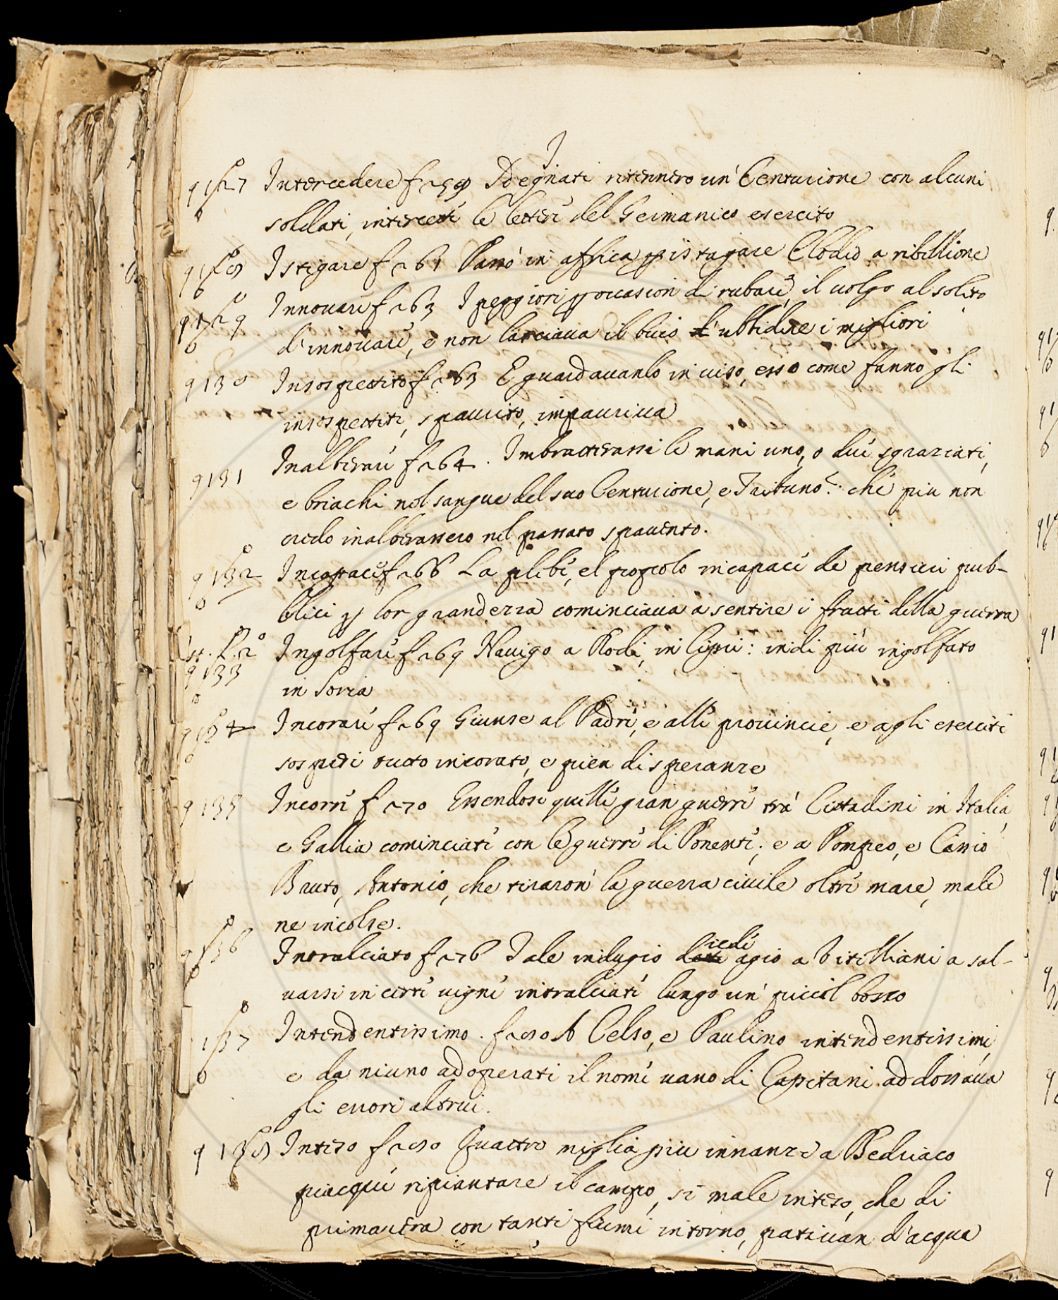 I
9127 Intercedere f 259 Sdegnati ritennero un' Centurione con alcuni
soldati, intercetti le lettere del Germanico esercito
9128 Istigare f 261 Passò in affrica p istigare Clodio a ribellione
9129 Innovare f 263 I peggiori p occasion di rubare, il volgo al solito
d'innovare, e non lasciava il buio d'ubbidire i migliori
9130 Insospettito f 263 E guardavanlo in viso, esso come fanno gli
insospettiti, spaurito, impauriva
9131 Inalberare f 264. Imbrattarassi le mani uno, o dui sgraziati,
e briachi nel sangue del suo Centurione, e Tribuno? che piu non
credo inalberassero nel passato spavento.
9132 Incapace f 266 La plebe, el popolo incapaci de pensieri pub-
blici p lor grandezza cominciava a sentire i frutti della guerra
9133 Ingolfare f 269 Navigo a Rodi, in Cipri: indi più ingolfato
in Soria
9134 Incorare f 269 Giunse al Padre, e alle provincie, e agli eserciti
sospesi tutto incorato, e pien di speranze
9135 Incorre f 270 Essendosi quelle gran guerre trà Cittadini in Italia,
e Gallia cominciate con le guerre di Ponente; e a Pompeo, e Cassio
Bruto, Antonio, che tiraron' la guerra civile oltre mare, male
ne incolse.
9136 Intralciato f 276 Tale indugio diedi agio a Vitelliani a sal-
varsi in certe vigne intralciate lungo un' piccol bosco
9137 Intendentissimo. f 280 A Celso, e Paulino intendentissimi,
e da niuno adoperati il nome vano di Capitani addossava
gli errori altrui.
9138 Inteso f 280 Quattro miglia piu innanzi a Bedriaco
piacque ripiantare il campo, si male inteso, che di
primavera con tanti fiumi intorno, pativan d'acqua